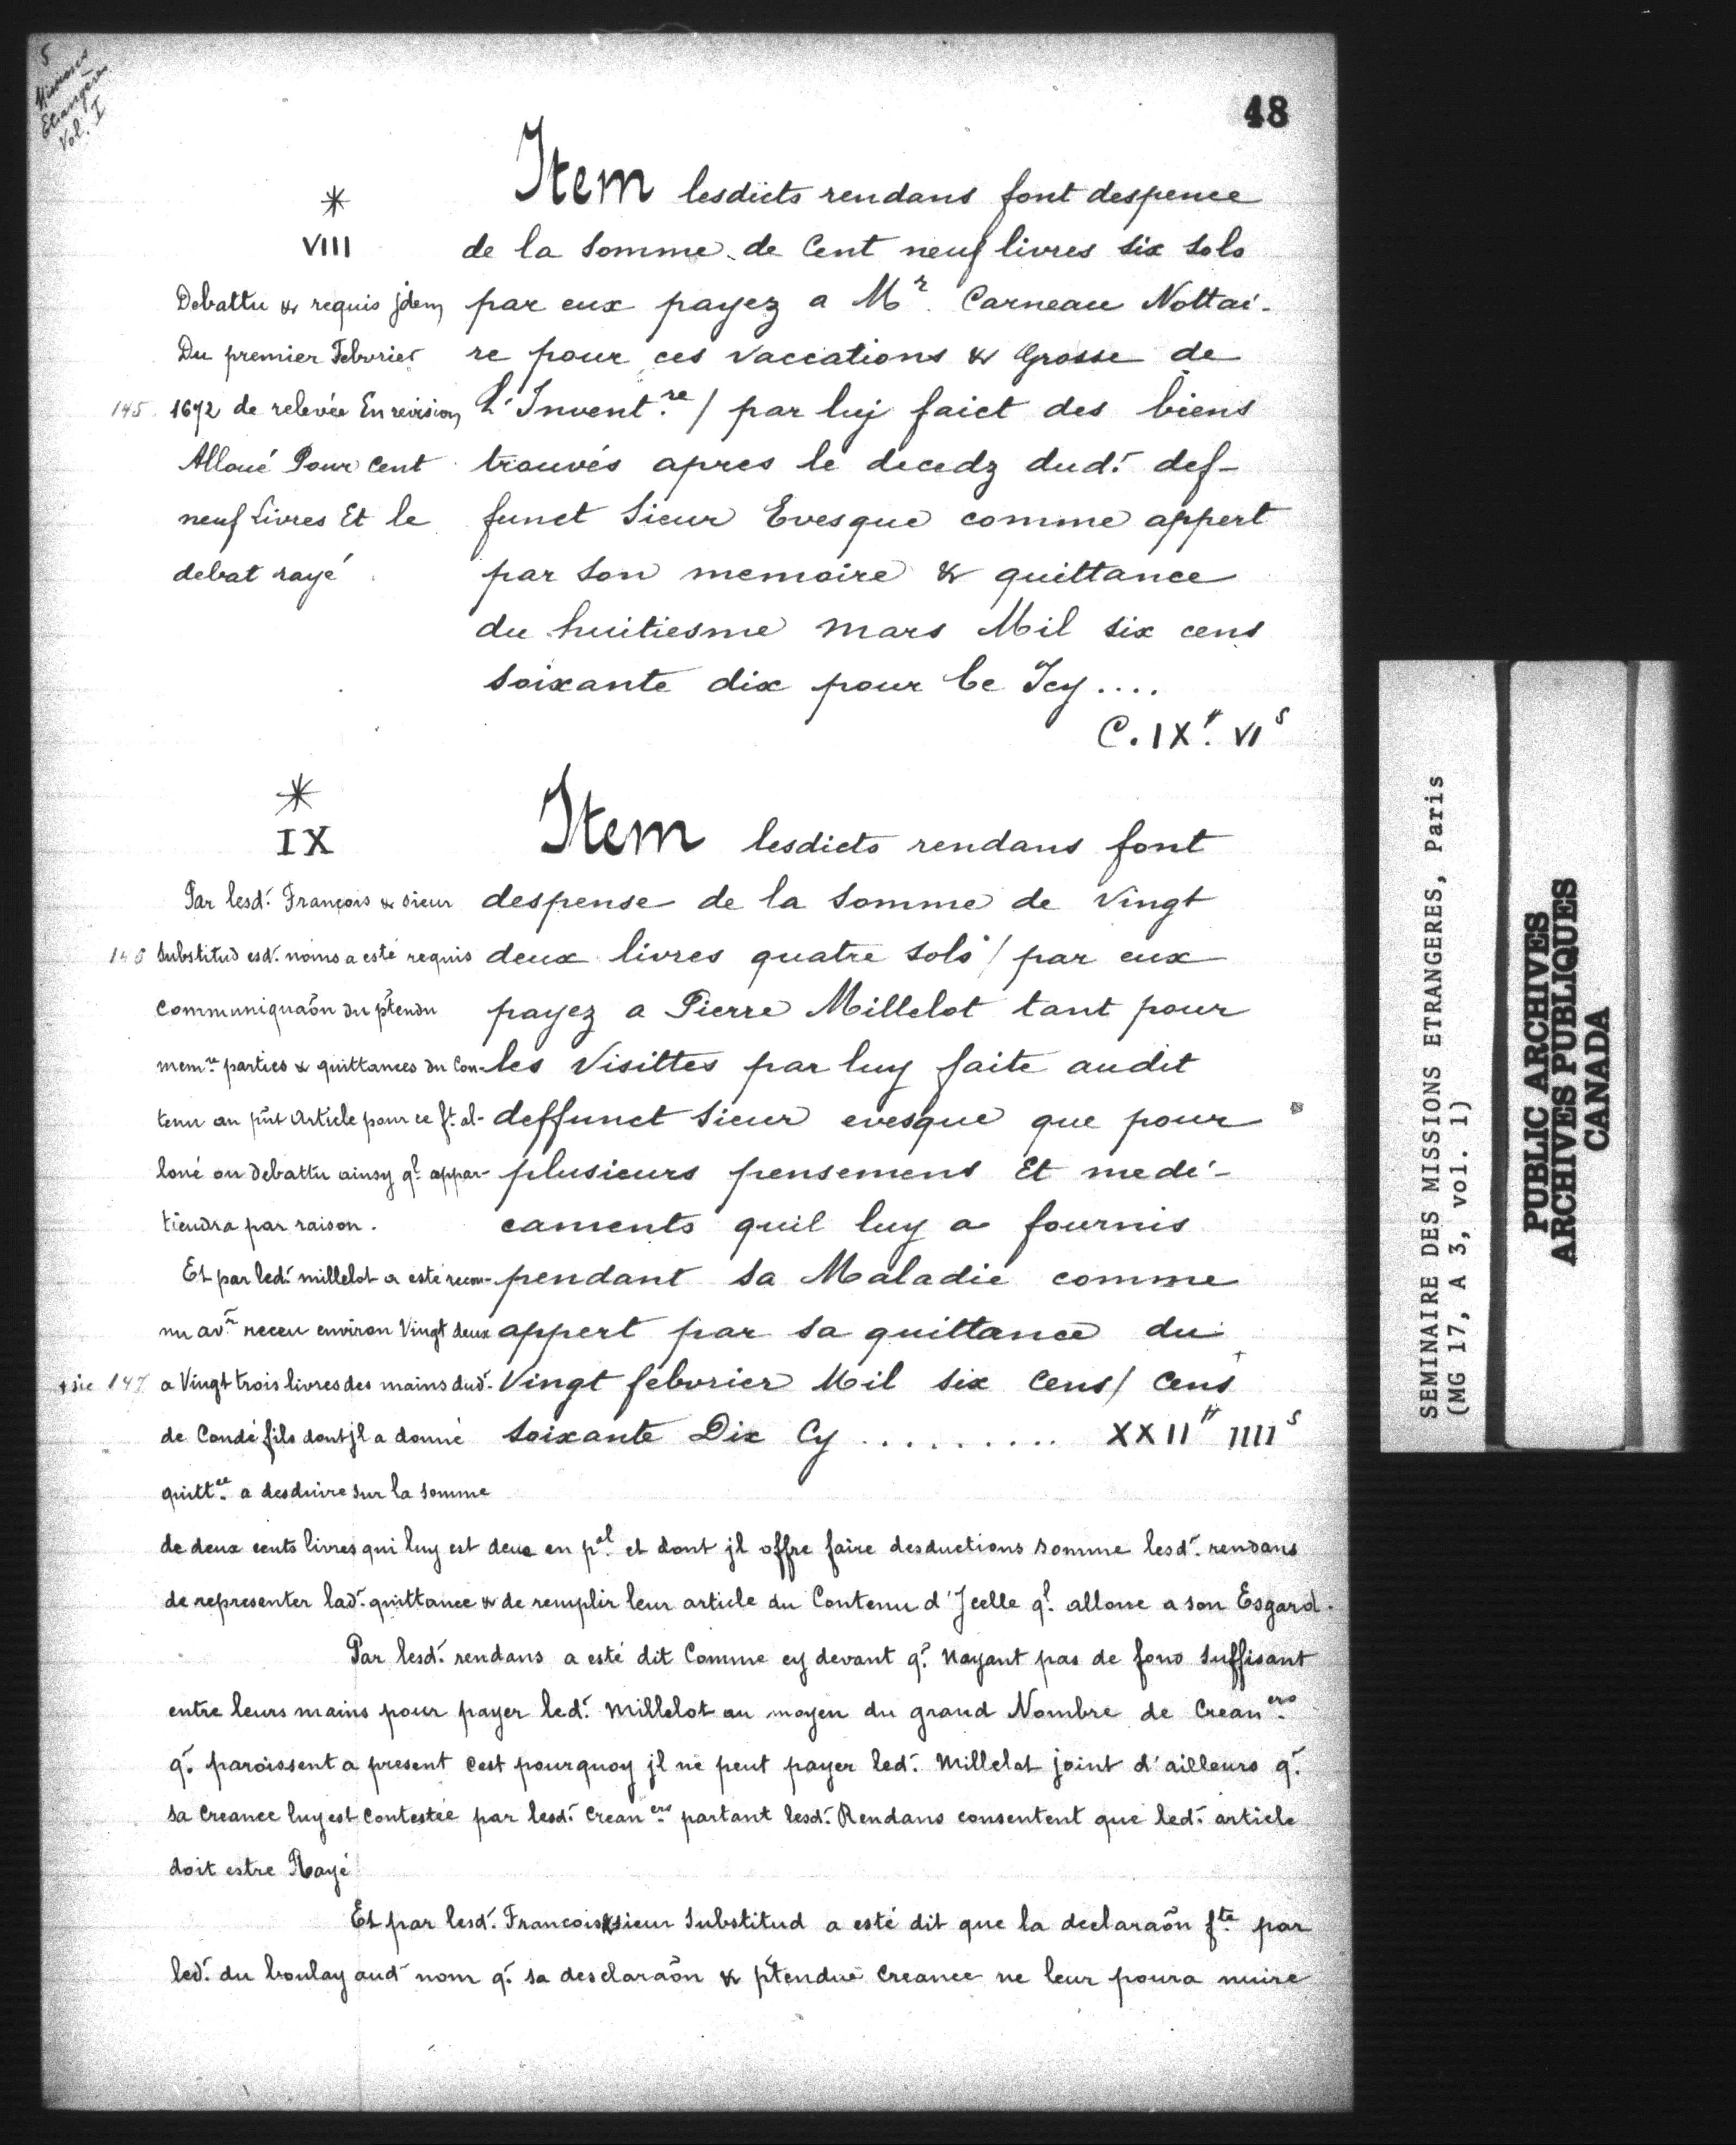 5
Missions
Etrangères
Vol. I
48
Item lesdicts rendans font despence
de la Somme de Cent neuf livres six sols
par eux payez a Mr. Carneau Nottai-
re pour ces vaccations & Grosse de
L'Invent.re / par luj faict des biens
trouvés apres le decedz dud.t def-
funct Sieur Evesque comme appert
par son memoire & quittance
du huitiesme mars Mil six cens
soixante dix pour Ce Icy....
C. IX#. VI s
*
VIII
Debattu & requis jdem
Du premier Febvrier
145. 1672 de relevée En revision
Alloué Pour Cent
neuf Livres Et le
debat rayé
Item lesdicts rendans font
despense de la Somme de Vingt
deux livres quatre sols / par eux
payez a Pierre Millelot tant pour
les Visittes par luy faite audit
deffunct Sieur evesque que pour
plusieurs pensemens Et medi-
caments quil luy a fournis
pendant sa Maladie comme
appert par sa quittance du
Vingt febvrier Mil six Cens / Cens +
soixante Dix Cy .......... XXII # IIII s
*
IX
Par lesd. François & sieur
146 Substitud esd. noms a esté requis
communiquaõn du p̃tendu
mem.re parties & quittances du Con-
tenu au p̃nt article pour ce f.t al-
loué ou debattu ainsy q.l appar-
tiendra par raison.
Et par led. millelot a esté recon-
nu av.r receu environ Vingt deux
+ sic 147 a Vingt trois livres des mains dud.
de Condé fils dont jl a donné
quitt.ce a desduire sur la somme
de deux cents livres qui luy est deue en p.al et dont jl offre faire desductions somme lesd. rendans
de representer lad. quittance & de remplir leur article du Contenu d'Jcelle q.l alloue a son Esgard.
Par lesd. rendans a esté dit Comme cy devant q. Nayant pas de fons suffisant
entre leurs mains pour payer led. Millelot au moyen du grand Nombre de Crean.ers
q. paroissent a present Cest pourquoy jl ne peut payer led. Millelot joint d'ailleurs q.
sa Creance luy est Contestée par lesd. Crean.ers partant lesd. Rendans consentent que led. article
doit estre Rayé
Et par lesd. Francois & sieur Substitud a esté dit que la declaraõn f.te par
led. du boulay aud. nom q. sa desclaraõn & p̃tendue Creance ne leur poura nuire
SEMINAIRE DES MISSIONS ETRANGERES, Paris
(MG 17, A 3, vol. 1)
PUBLIC ARCHIVES
ARCHIVES PUBLIQUES
CANADA